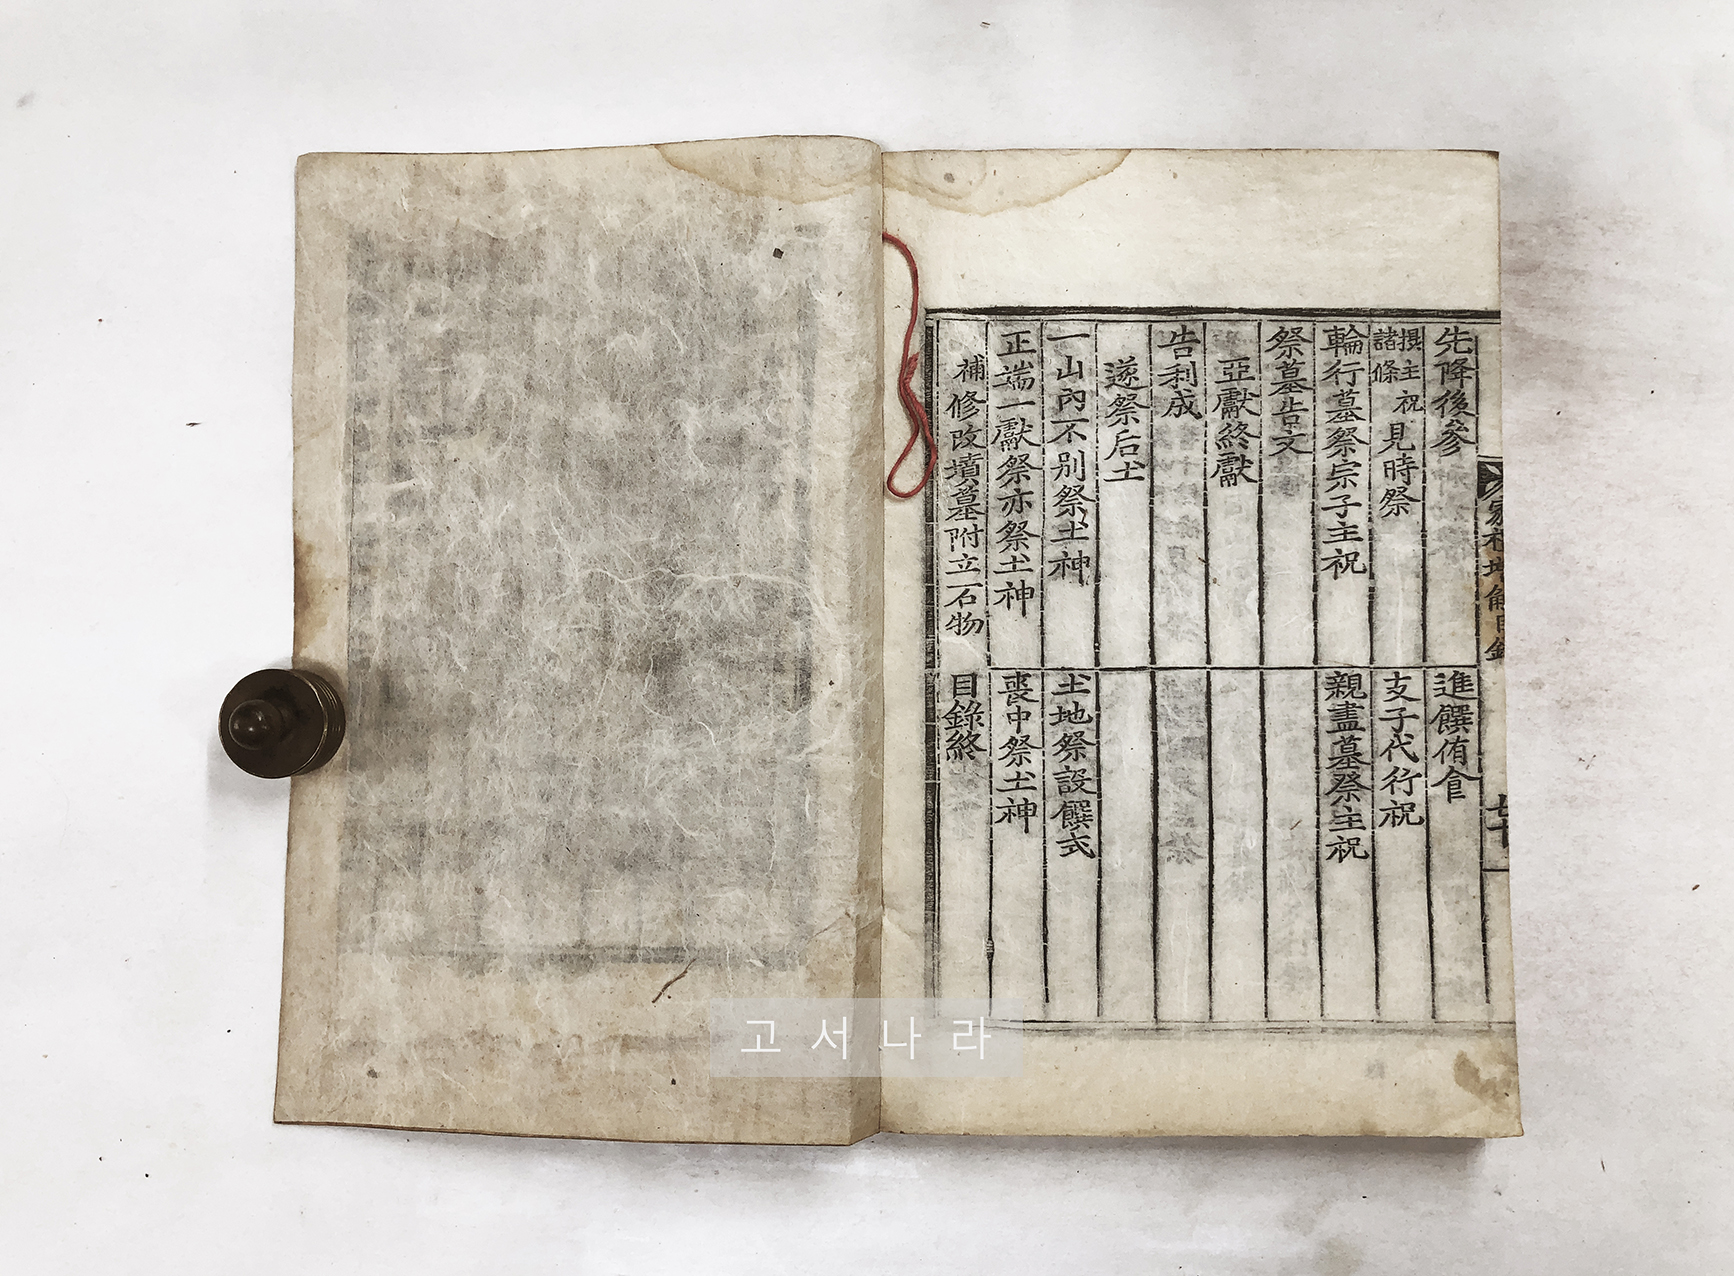 家礼增解目錄
先降後參
進饌侑食
撰主祝諸條見時祭
支子代行祝
輪行墓祭宗子主祝
親盡墓祭主祝
祭墓告文
亞獻終獻
告利成
遂祭后土
一山內不別祭土神
土地祭設饌式
正端一獻祭亦祭土神
喪中祭土神
補修改墳墓附立石物
目錄終
고서나라